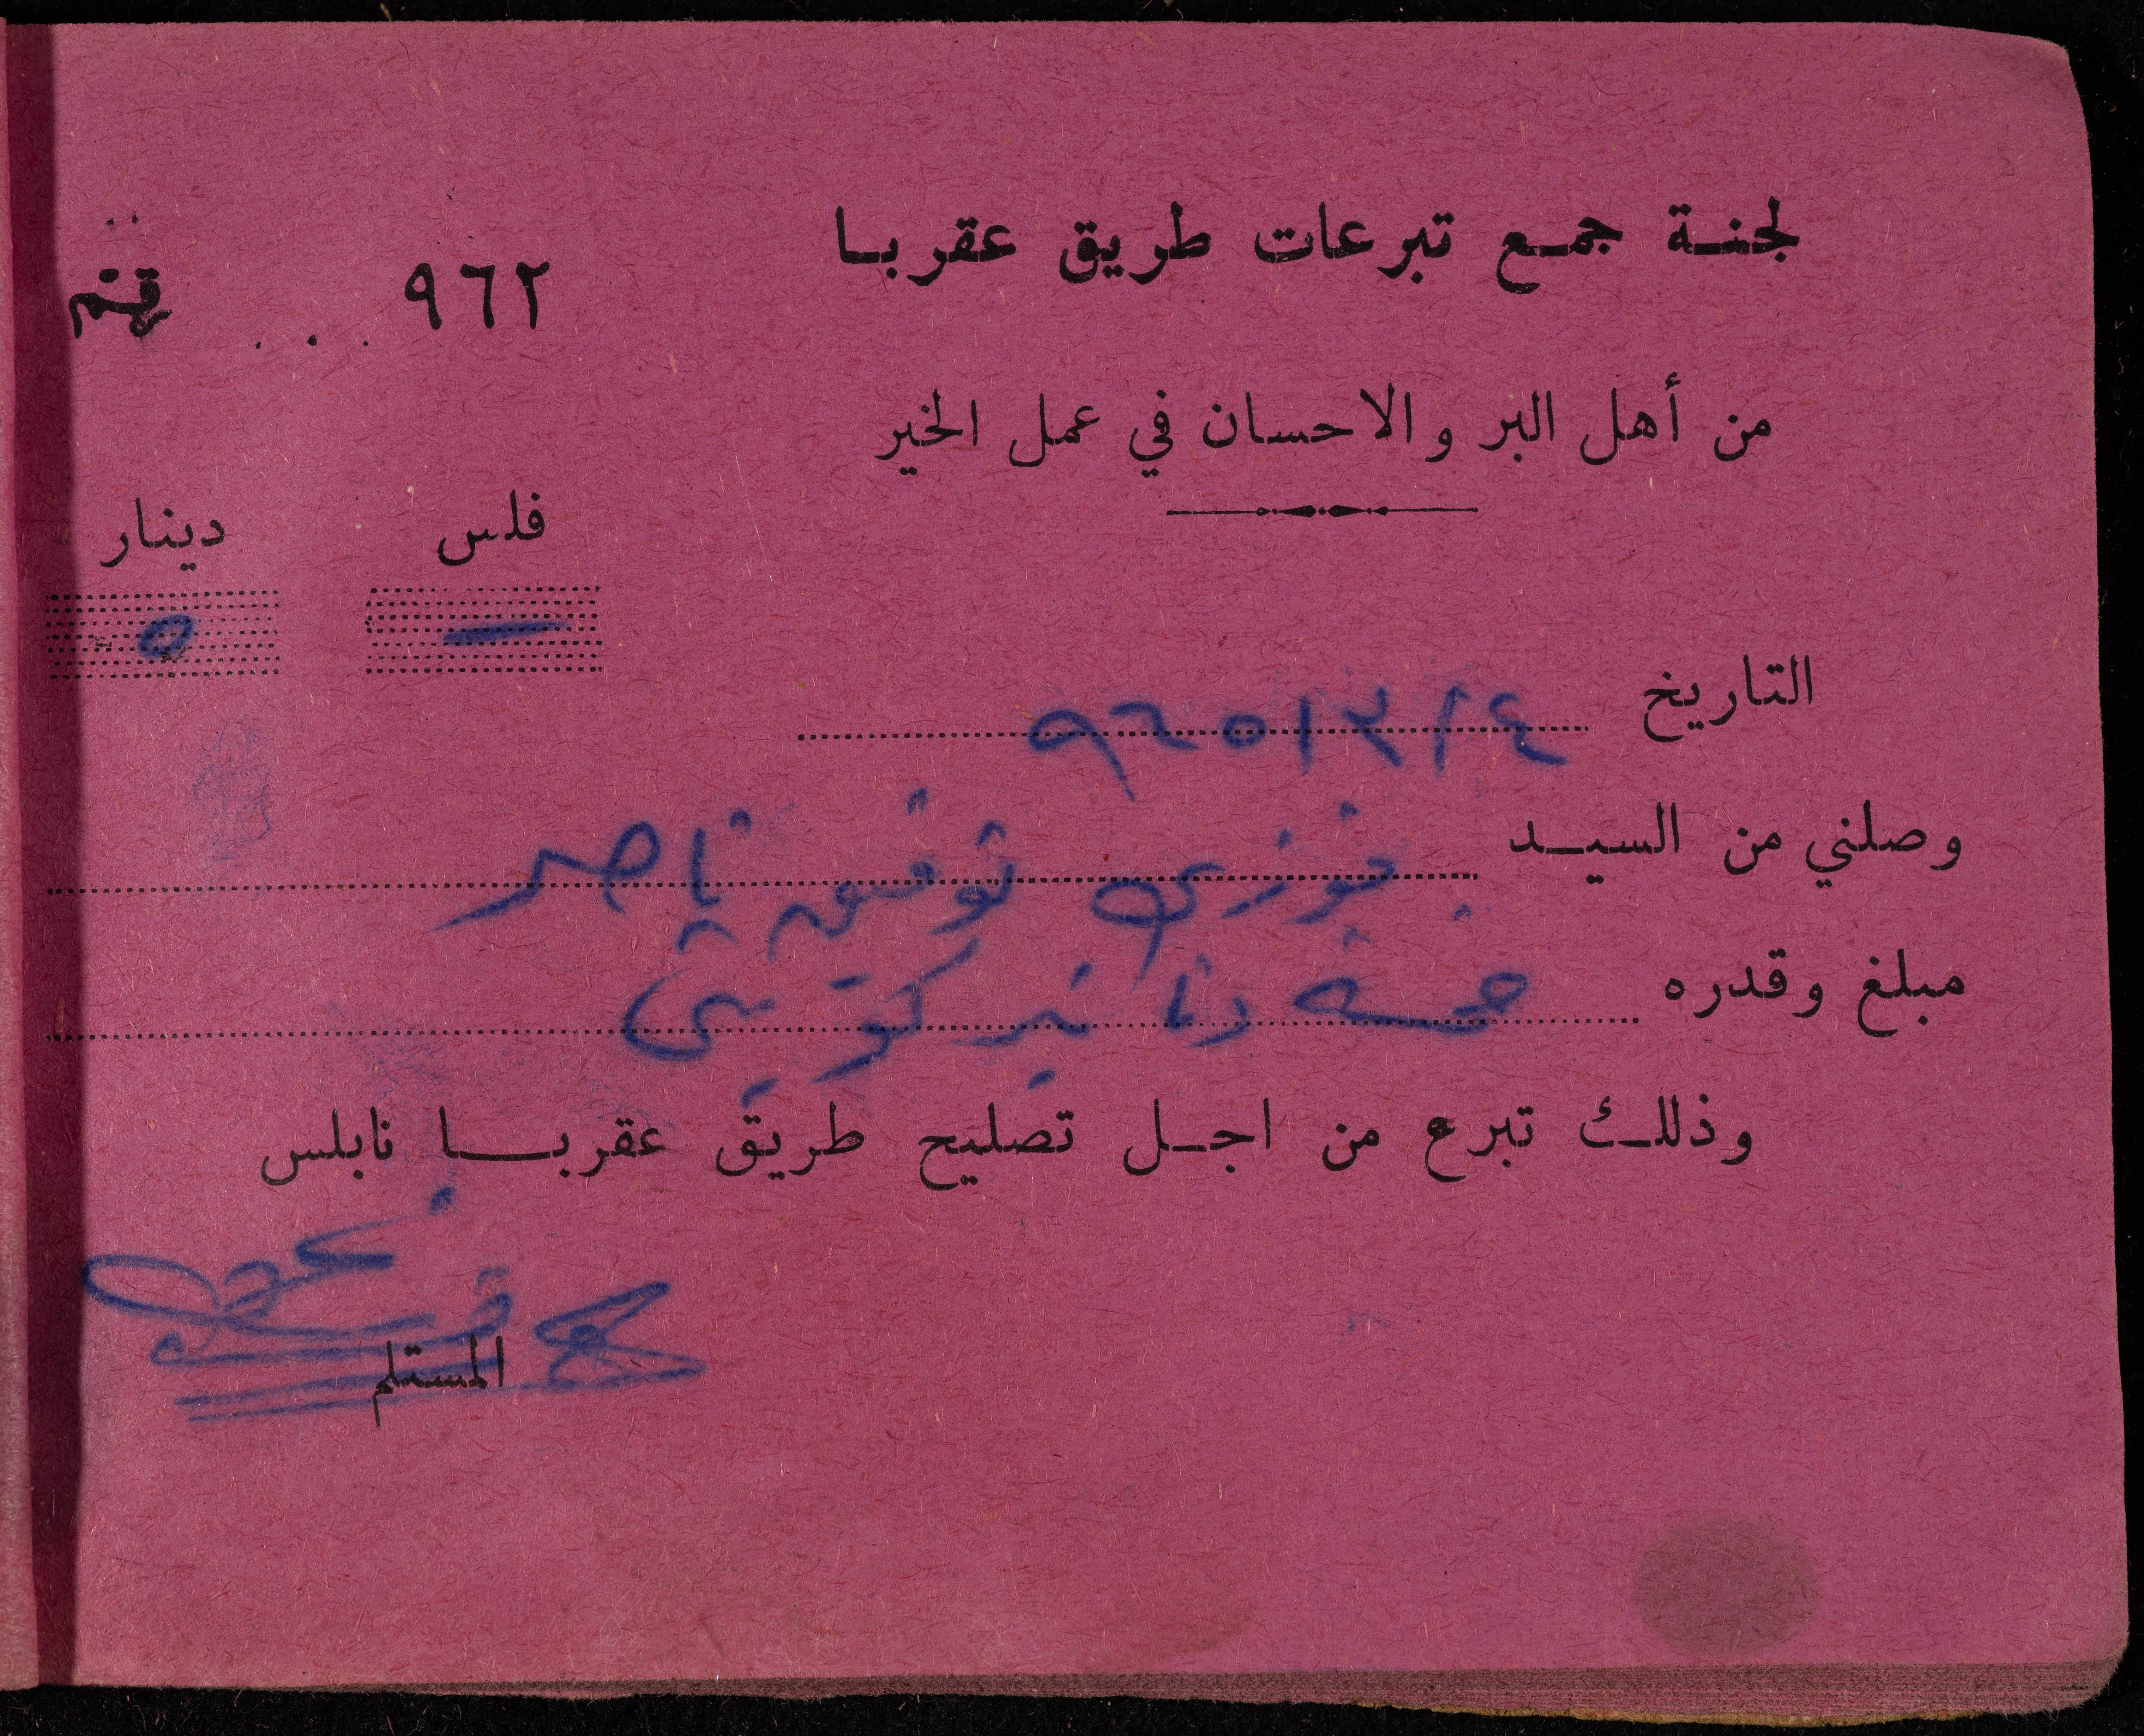 لجنة جمع تبرعات طريق عقربا
٩٦٢
من أهل البر والاحسان في عمل الخير
فلس دينار
— ٥
التاريخ ٢٤ / ٣ / ٩٦٥
وصلني من السيد فوزي توفيق ناصر
مبلغ وقدره خمسة دنانير كويتي
وذلك تبرع من اجل تصليح طريق عقربا نابلس
المستلم